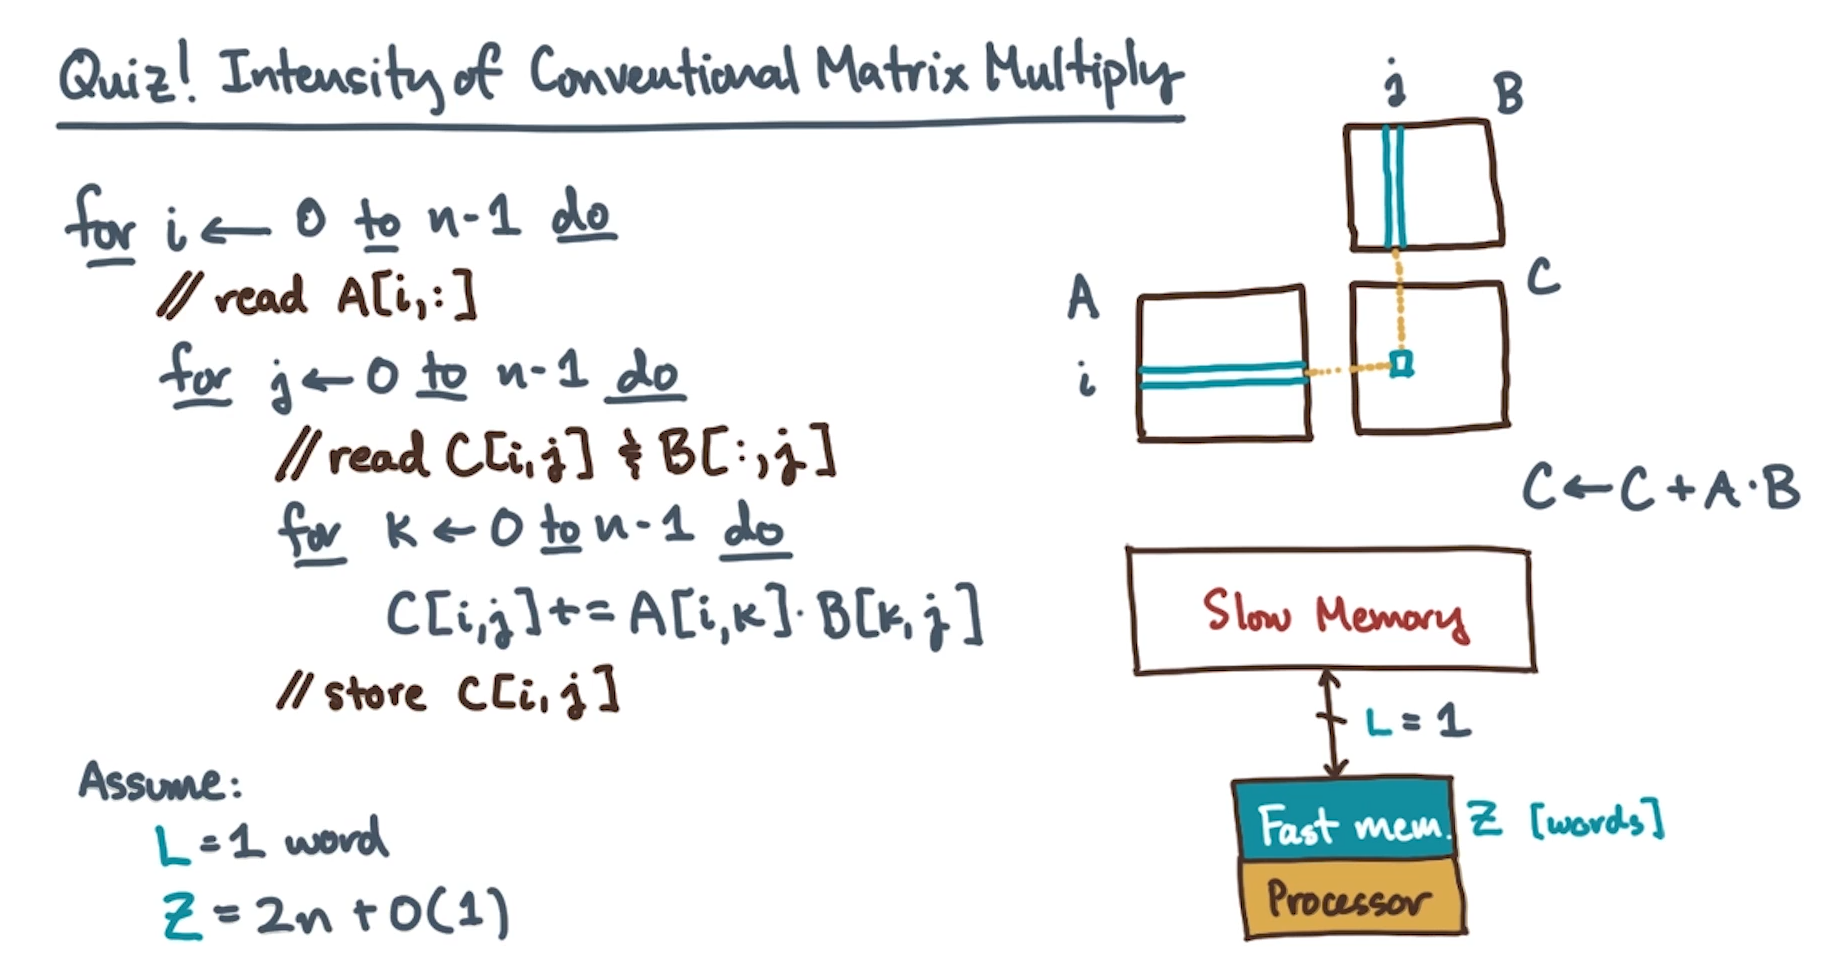 Quiz! Intensity of Conventional Matrix Multiply
for i ← 0 to n-1 do
// read A[i,:]
for j ← 0 to n-1 do
// read C[i,j] & B[:,j]
for k ← 0 to n-1 do
C[i,j] += A[i,k]·B[k,j]
// store C[i,j]
Assume:
L = 1 word
Z = 2n + O(1)
j
B
A
C
i
C ← C + A·B
Slow Memory
L = 1
Fast mem.
Z [words]
Processor